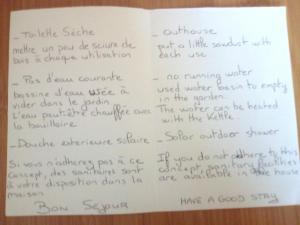 - Toilette Sèche
mettre un peu de sciure de
bois à chaque utilisation
- Pas d'eau courante
bassine d'eau usée à
vider dans le jardin
L'eau peut-être chauffée avec
la bouilloire
- Douche exterieure solaire
Si vous n'adhérez pas à ce
concept, des sanitaires sont
à votre disposition dans la
maison
BON SEJOUR
- outhouse
put a little sawdust with
each use
- no running water
used water basin to empty
in the garden.
The water can be heated
with the Kettle.
- Solar outdoor shower
If you do not adhere to this
concept sanitary facilities
are available in the house
HAVE A GOOD STAY